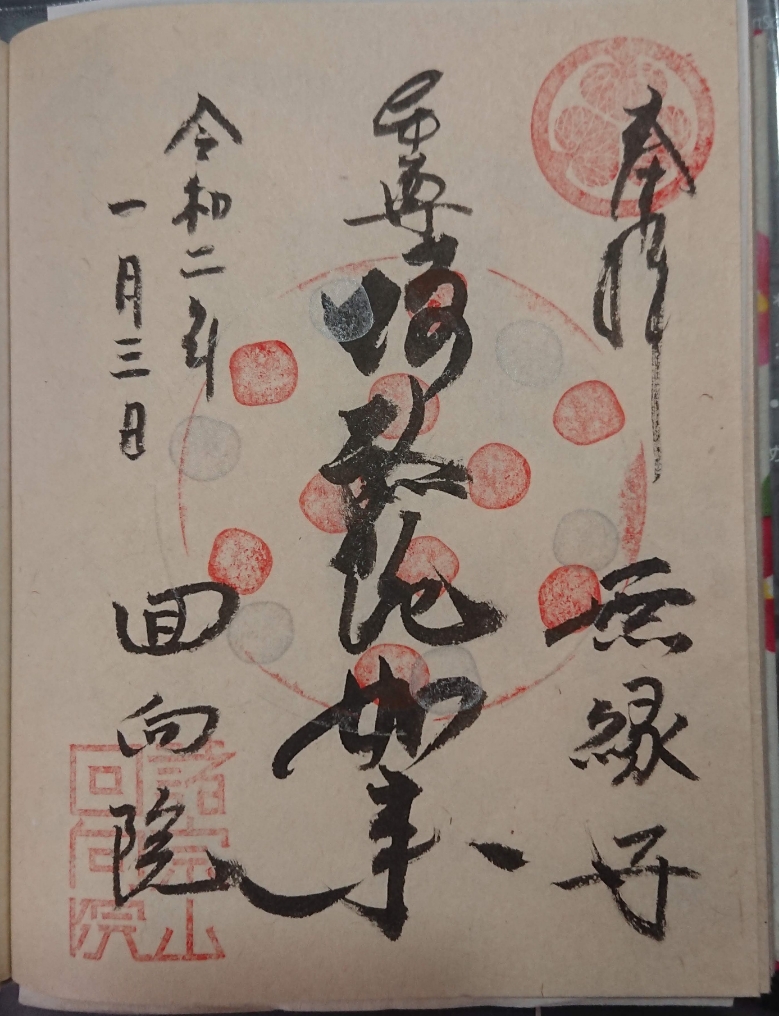 奉拝
無縁寺
阿弥陀如来
令和二年
一月三日
回向院
諸宗山
回向院